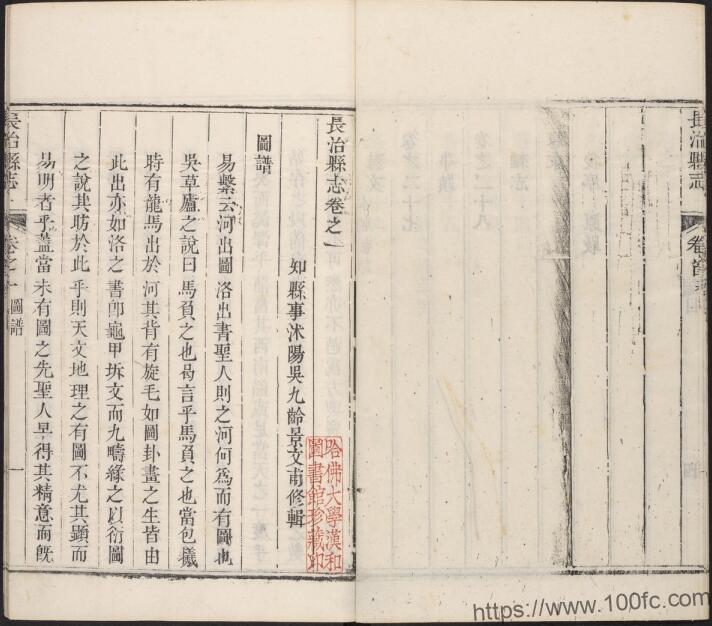 長治縣志
卷首
四
長治縣志卷之一
知縣事沭陽吳九齡景文甫修輯
圖譜
易繫云河出圖洛出書聖人則之河何爲而有圖也
吳草廬之說曰馬負之也曷言乎馬負之也當包犧
時有龍馬出於河其背有旋毛如圖卦畫之生皆由
此出亦如洛之書卽龜甲坼文而九疇緣之以衍圖
之說其昉於此乎則天文地理之有圖不尤其顯而
易明者乎蓋當未有圖之先聖人早得其精意而旣
長治縣志
卷之一
圖譜
一
哈佛大學漢和
圖書館珍藏印
https://www.100fc.com